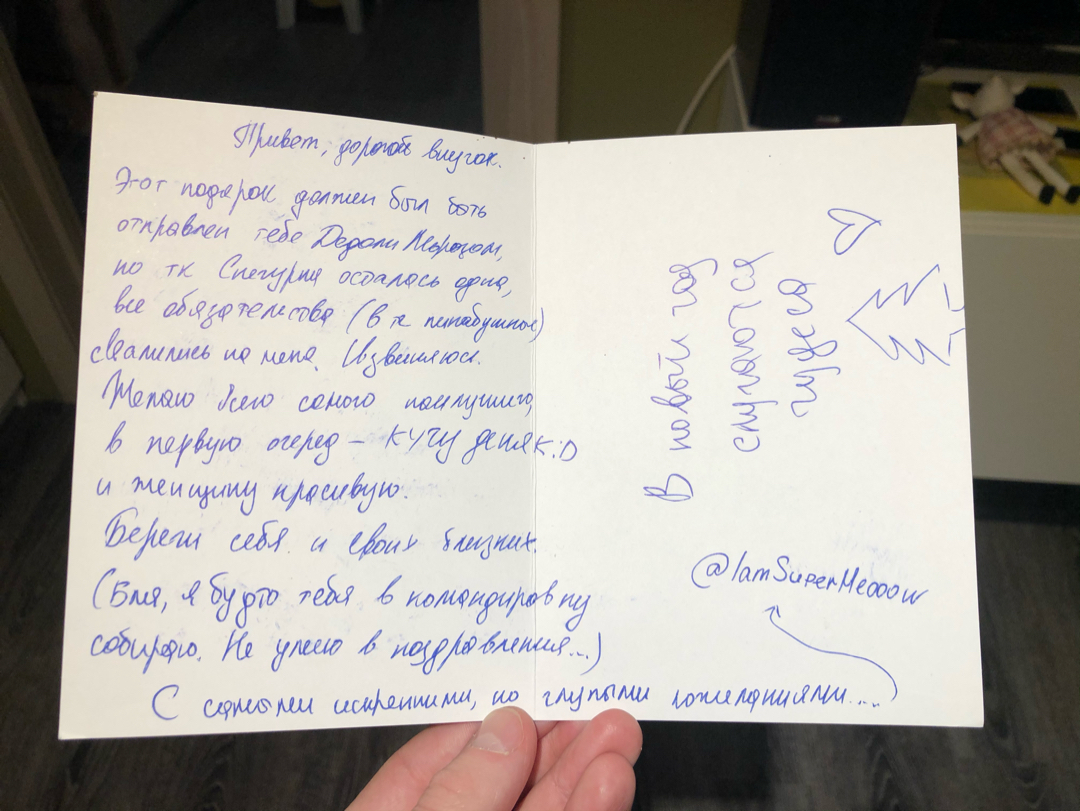 Привет, дорогой внучок.
Этот подарок должен был быть
отправлен тебе Дедом Морозом,
но тк Снегурка осталась одна,
все обязательства (в тч
свалились на меня. Извиняюсь.
Желаю всего самого наилучшего,
в первую очеред – КУЧУ деняк :D
и женщину красивую.
Береги себя и своих близких.
(Бля, я будто тебя в командировку
собираю. Не умею в поздравления...)
С самыми искренними, но глупыми пожеланиями....
В новый год
случаются
чудеса
@IamSuperMeooow